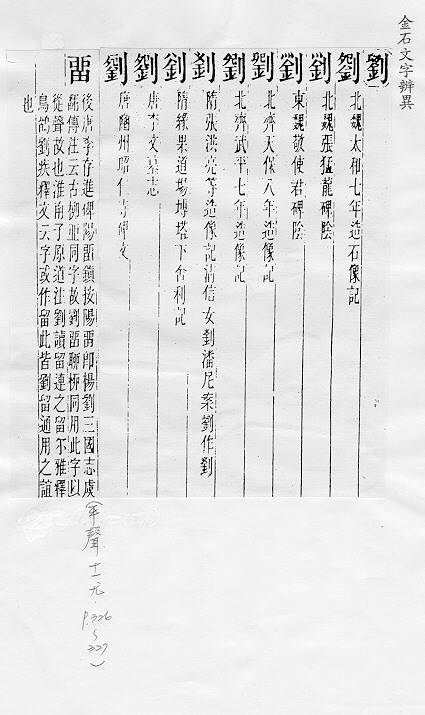 金石文字辨異
劉
劉 北魏太和七年造石像記
劉 北魏張猛龍碑陰
劉 東魏敬使君碑陰
劉 北齊天保八年造像記
劉 北齊武平七年造像記
刘 隋張洪亮等造像記清信女劉潘尼案劉作刘
劉 隋緣果道場塼塔下舍利記
劉 唐李文墓志
劉 唐豳州昭仁寺碑文
畱 後唐李存進碑陽畱鎮按陽畱卽楊劉三國志虞
翻傳注云古柳丣同字故劉畱聊柳同用此字以
從聲故也淮南子原道注劉讀留連之留尔雅釋
鳥鶹劉疾釋文云字或作留此皆劉留通用之誼
也
(平聲 十一尤.
P.326
〜
327)